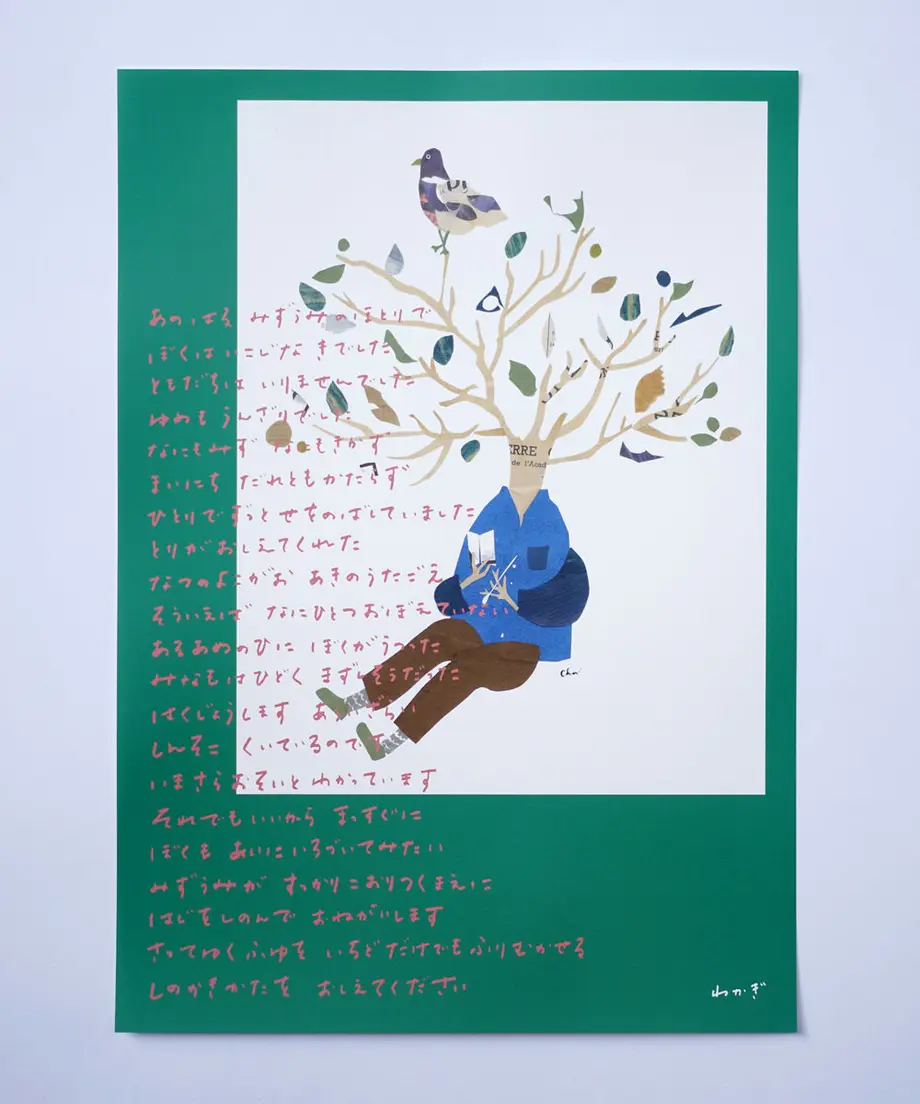 ERRE
de l'Acad
あのはる みずうみのほとりで
ぼくは いこじな きでした
ともだちは いりませんでした
ゆめも うんざりでした
なにもみず なにもきかず
まいにち だれともかたらず
ひとりでずっと せをのばしていました
とりがおしえてくれた
なつのよこがお あきのうたごえ
そういえば なにひとつおぼえていない
あるあめのひに ぼくがうつった
みなもはひどく まずしそうだった
はくじょうします あらいざらい
しんそこ くいているのです
いまさらおそいと わかっています
それでもいいから まっすぐに
ぼくも あいにいろづいてみたい
みずうみが すっかりこおりつくまえに
はじをしのんで おねがいします
さってゆくふゆを いちどだけでもふりむかせる
しのかきかたを おしえてください
わかぎ